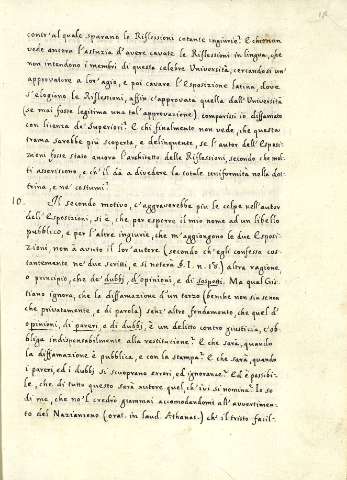 contr'al quale sparano le Riflessioni cotante ingiurie? E chi non
vede ancora l'astuzia d'avere cavate le Riflessioni in lingua, che
non intendono i membri di questa celebre Università, cercandosi un'
approvatore a lor'agio, e poi cavare l'Esposizione latina, dove
s'elogiono le Riflessioni, affin c'approvata quella dall'Università
(se mai fosse legitima una tal'approvazione) comparissi io diffamato
con licenza de' Superiori? E chi finalmente non vede, che questa
trama sarebbe più scoperta, e delinquente, se l'autor dell'Esposi-
zioni fosse stato ancora l'architetto delle Riflessioni, secondo che mol-
ti asseriscono, e ch'il dà a divedere la totale uniformita nella dot-
trina, e ne' costumi?
10. Il secondo motivo, c'aggraverebbe più le colpe nell'autor
dell'Esposizioni, si è, che per esporre il mio nome ad un libello
pubblico, e per l'altre ingiurie, che m'aggiongono le due Esposi-
zioni, non à avuto il lor'autore (secondo ch'egli confessa cos
tantemente ne' due scritti, e si noterà §. I. n. 18.) altra ragione,
o principio, che de' dubbj, d'opinioni, e di sospetti. Ma qual Cris-
tiano ignora, che la diffamazione d'un terzo (benche non sia se non
che privatamente, e di parola) senz'altro fondamento, che quel d'
opinioni, di pareri, e di dubbj, è un delitto contro giustizia, c'ob-
bliga indispensabilmente alla restituzione? E che sarà, quando
la diffamazione è pubblica, e con la stampa? E che sarà, quando
i pareri, ed i dubbj si scuoprano errori, ed ignoranze? Ed è possibi-
le, che di tutto questo sarà autore quel, ch'ivi si nomina? Io so
di me, che no'l crederò giammai accomodandomi all'avvertimen-
to del Nazianzeno (orat. in laud. Athanas.) ch'il tristo facil-